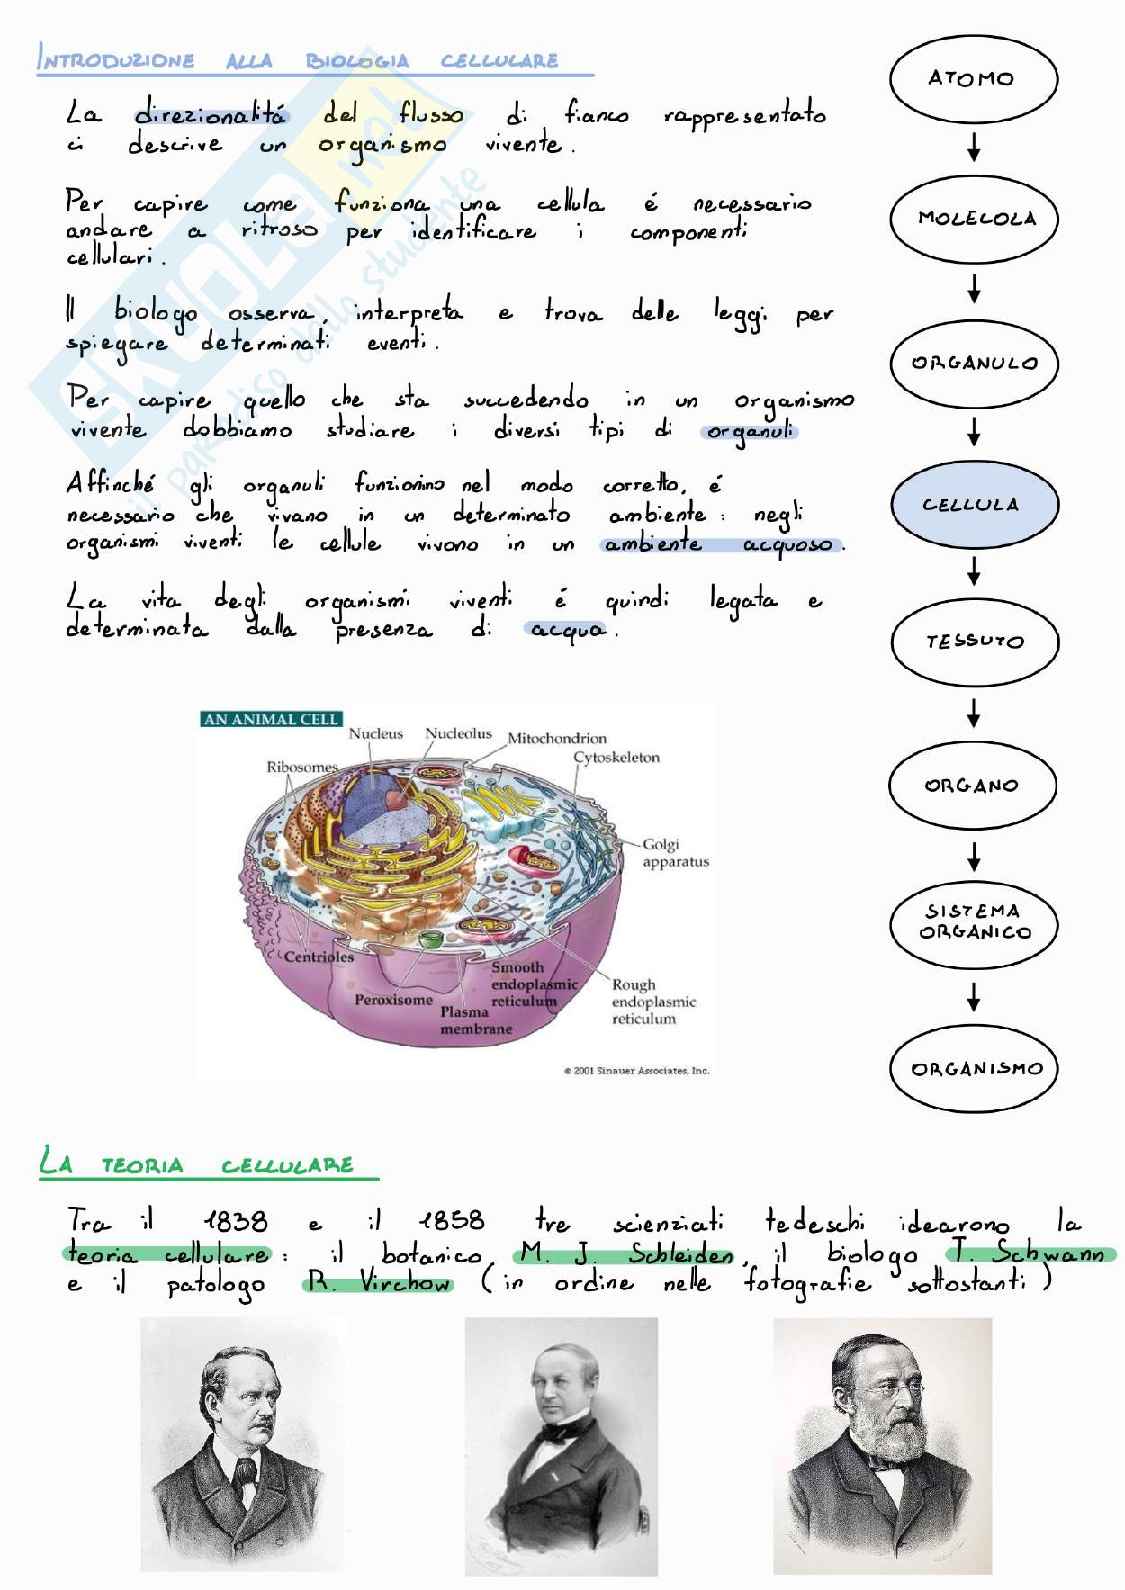 INTRODUZIONE ALLA BIOLOGIA CELLULARE
La direzionalitá del flusso di fianco rappresentato
ci descrive un organismo vivente.
Per capire come funziona una cellula é necessario
andare a ritroso per identificare i componenti
cellulari.
Il biologo osserva, interpreta e trova delle leggi per
spiegare determinati eventi.
Per capire quello che sta succedendo in un organismo
vivente dobbiamo studiare i diversi tipi di organuli
Affinché gli organuli funzionino nel modo corretto, é
necessario che vivano in un determinato ambiente: negli
organismi viventi le cellule vivono in un ambiente acquoso.
La vita degli organismi viventi é quindi legata e
determinata dalla presenza di acqua.
ATOMO
MOLECOLA
ORGANULO
CELLULA
TESSUTO
ORGANO
SISTEMA
ORGANICO
ORGANISMO
SKUOLA.net
il paradiso dello studente
AN ANIMAL CELL
Nucleus
Nucleolus
Mitochondrion
Cytoskeleton
Ribosomes
Golgi
apparatus
Centrioles
Peroxisome
Plasma
membrane
Smooth
endoplasmic
reticulum
Rough
endoplasmic
reticulum
© 2001 Sinauer Associates, Inc.
LA TEORIA CELLULARE
Tra il 1838 e il 1858 tre scienziati tedeschi idearono la
teoria cellulare: il botanico M. J. Schleiden, il biologo T. Schwann
e il patologo R. Virchow (in ordine nelle fotografie sottostanti)